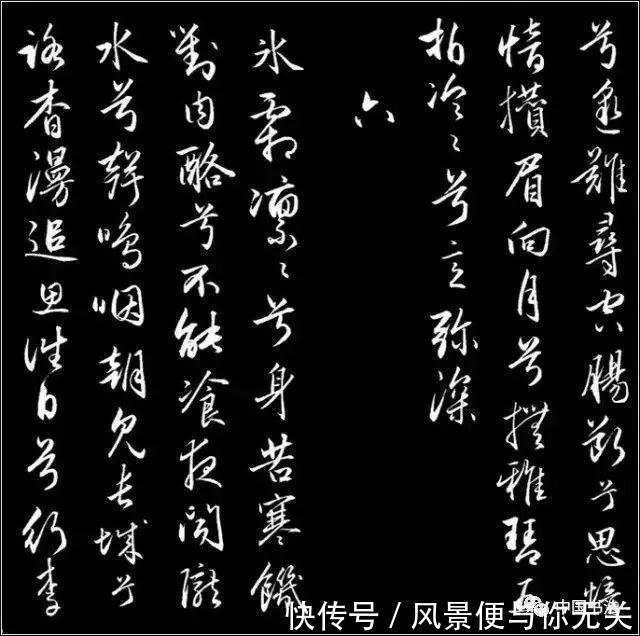 兮邈難尋空腸斷兮思愔
愔攢眉向月兮撫雅琴五
拍泠〻兮意弥深
六
氷霜凛〻兮身苦寒饑
對肉酪兮不能飡夜聞隴
水兮聲嗚咽朝見長城兮
路杳漫追思往日兮行李
中国书法
快传号 / 风景便与你无关